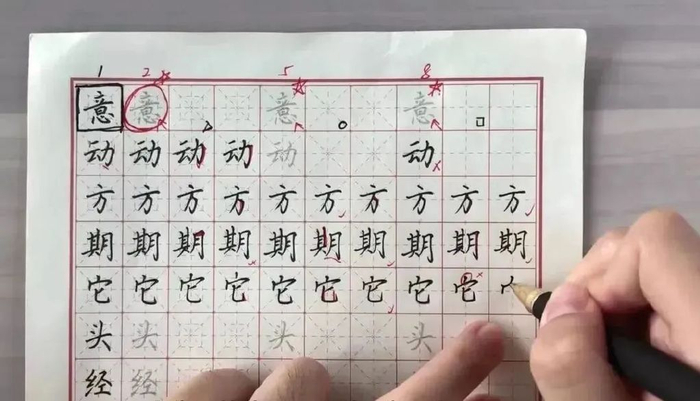 1 2 5 8
意 意 意 意
动 动 动 动 动 动
方 方 方 方 方 方 方 方 方 方
期 期 期 期 期 期 期 期 期 期
它 它 它 它 它 它 它 它 它
头 头 头 头
经 经